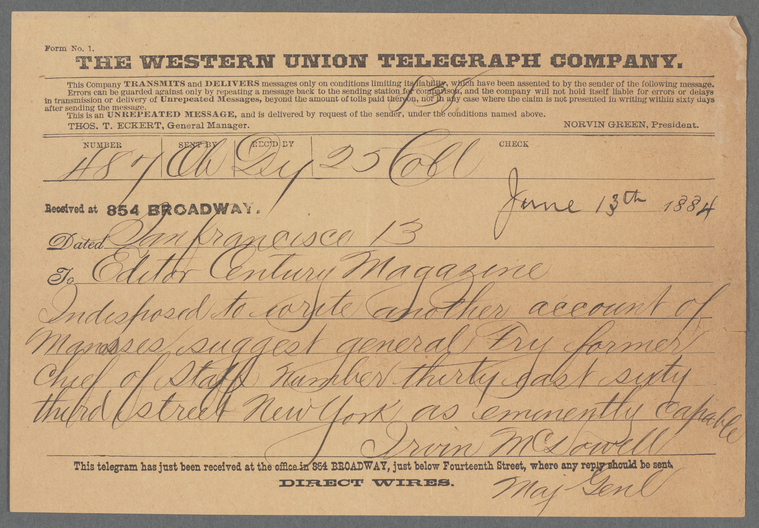 Form No. 1.
THE WESTERN UNION TELEGRAPH COMPANY.
This Company TRANSMITS and DELIVERS messages only on conditions limiting its liability, which have been assented to by the sender of the following message.
Errors can be guarded against only by repeating a message back to the sending station for comparison, and the company will not hold itself liable for errors or delays
in transmission or delivery of Unrepeated Messages, beyond the amount of tolls paid thereon, nor in any case where the claim is not presented in writing within sixty days
after sending the message.
This is an UNREPEATED MESSAGE, and is delivered by request of the sender, under the conditions named above.
THOS. T. ECKERT, General Manager. NORVIN GREEN, President.
NUMBER SENT BY REC'D BY CHECK
487 25 Coll
Received at 854 BROADWAY. June 13th 1884
Dated San francisco 13
To Editor Century Magazine
Indisposed to write another account of
Manasses suggest general Fry former
Chief of Staff Number thirty east sixty
third street New York as eminently capable
Irvin McDowell
This telegram has just been received at the office in 854 BROADWAY, just below Fourteenth Street, where any reply should be sent.
DIRECT WIRES. Maj Genl